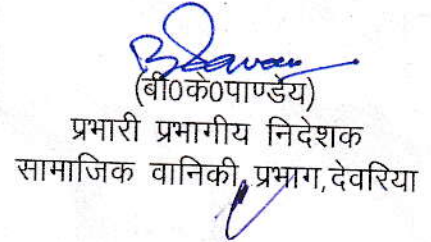 (बी0के0पाण्डेय)
प्रभारी प्रभागीय निदेशक
सामाजिक वानिकी, प्रभाग,देवरिया